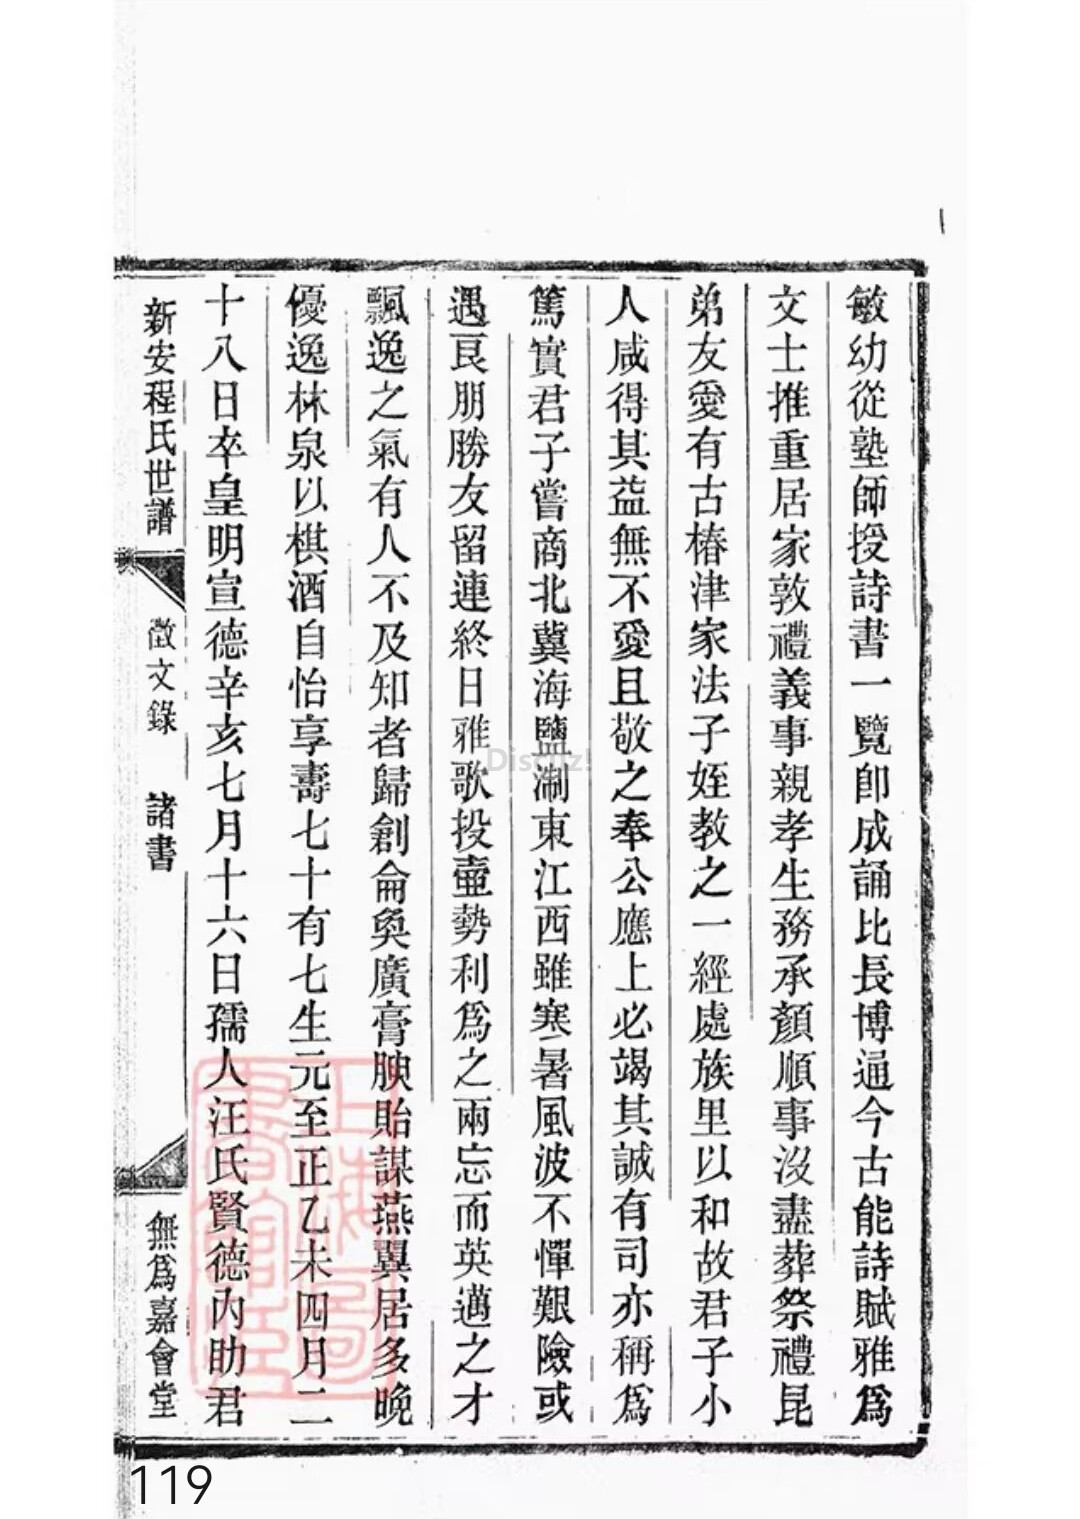 敏幼從塾師授詩書一覽卽成誦比長博通今古能詩賦雅爲
文士推重居家敦禮義事親孝生務承顏順事沒盡葬祭禮昆
弟友愛有古椿津家法子姪教之一經處族里以和故君子小
人咸得其益無不愛且敬之奉公應上必竭其誠有司亦稱爲
篤實君子嘗商北冀海鹽淛東江西雖寒暑風波不憚艱險或
遇良朋勝友留連終日雅歌投壺勢利爲之兩忘而英邁之才
飄逸之氣有人不及知者歸創侖奐廣膏腴貽謀燕翼居多晚
優逸林泉以棋酒自怡享壽七十有七生元至正乙未四月二
十八日卒皇明宣德辛亥七月十六日孺人汪氏賢德內助君
新安程氏世譜 徵文錄 諸書 無爲嘉會堂
上海圖書館藏
Discuz!
119